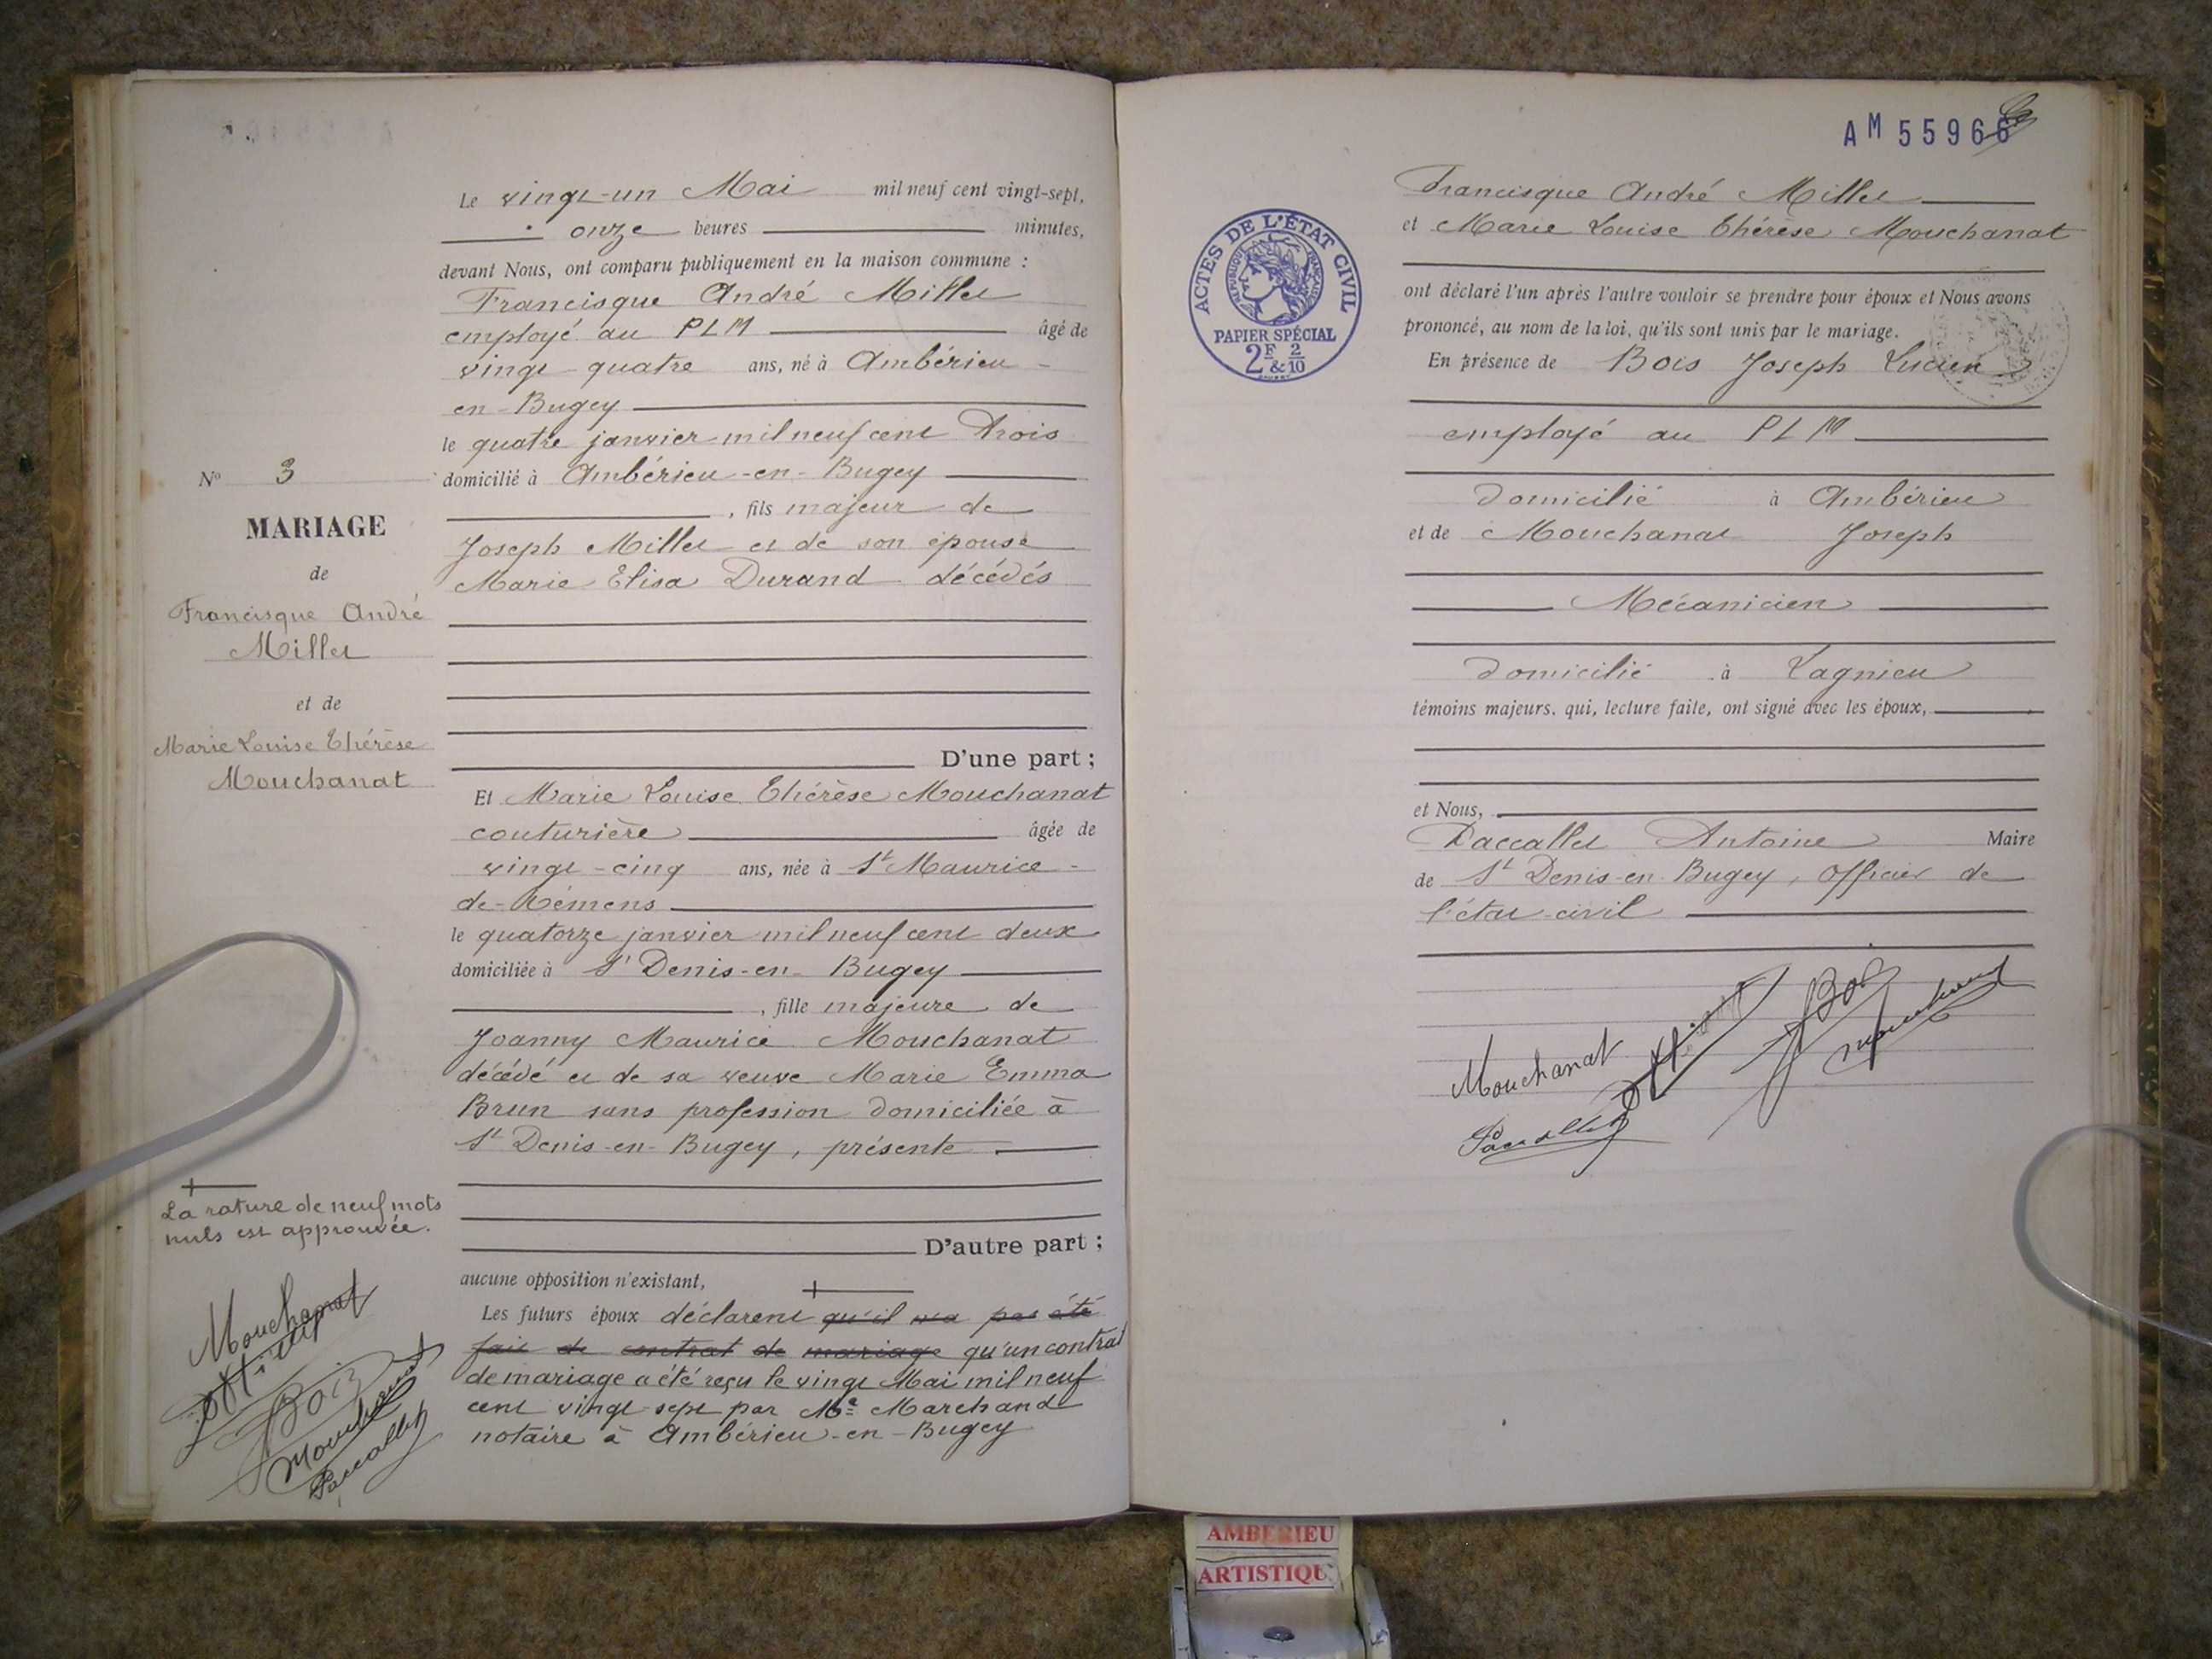 Le vingt-un Mai mil neuf cent vingt-sept,
onze heures minutes,
devant Nous, ont comparu publiquement en la maison commune :
Francisque André Millet
employé au PLM âgé de
vingt-quatre ans, né à Ambérieu-
en-Bugey
le quatre janvier mil neuf cent trois
domicilié à Ambérieu-en-Bugey
, fils majeur de
Joseph Millet et de son épouse
Marie Elisa Durand décédés
D'une part ;
Et Marie Louise Thérèse Mouchanat
couturière âgée de
vingt-cinq ans, née à St Maurice-
de-Rémens
le quatorze janvier mil neuf cent deux
domiciliée à St Denis-en-Bugey
, fille majeure de
Joanny Maurice Mouchanat
décédé et de sa veuve Marie Emma
Brun sans profession domiciliée à
St Denis-en-Bugey, présente
D'autre part ;
aucune opposition n'existant,
Les futurs époux déclarent qu'il n'a pas été
fait de contrat de mariage qu'un contrat
de mariage a été reçu le vingt Mai mil neuf
cent vingt-sept par Me Marchand
notaire à Ambérieu-en-Bugey
No 3
MARIAGE
de
Francisque André
Millet
et de
Marie Louise Thérèse
Mouchanat
La rature de neuf mots
nuls est approuvée.
Mouchanat
Bois
Mouchanat
Paccallet
AM 55966
ACTES DE L'ÉTAT CIVIL
RÉPUBLIQUE FRANÇAISE
PAPIER SPÉCIAL
2F & 2/10
Francisque André Millet
et Marie Louise Thérèse Mouchanat
ont déclaré l'un après l'autre vouloir se prendre pour époux et Nous avons
prononcé, au nom de la loi, qu'ils sont unis par le mariage.
En présence de Bois Joseph Lucien
employé au PLM
domicilié à Ambérieu
et de Mouchanat Joseph
Mécanicien
domicilié à Lagnieu
témoins majeurs, qui, lecture faite, ont signé avec les époux,
et Nous,
Paccallet Antoine Maire
de St Denis-en-Bugey, officier de
l'état-civil
Mouchanat
Bois
Mouchanat
Paccallet
AMBERIEU
ARTISTIQU